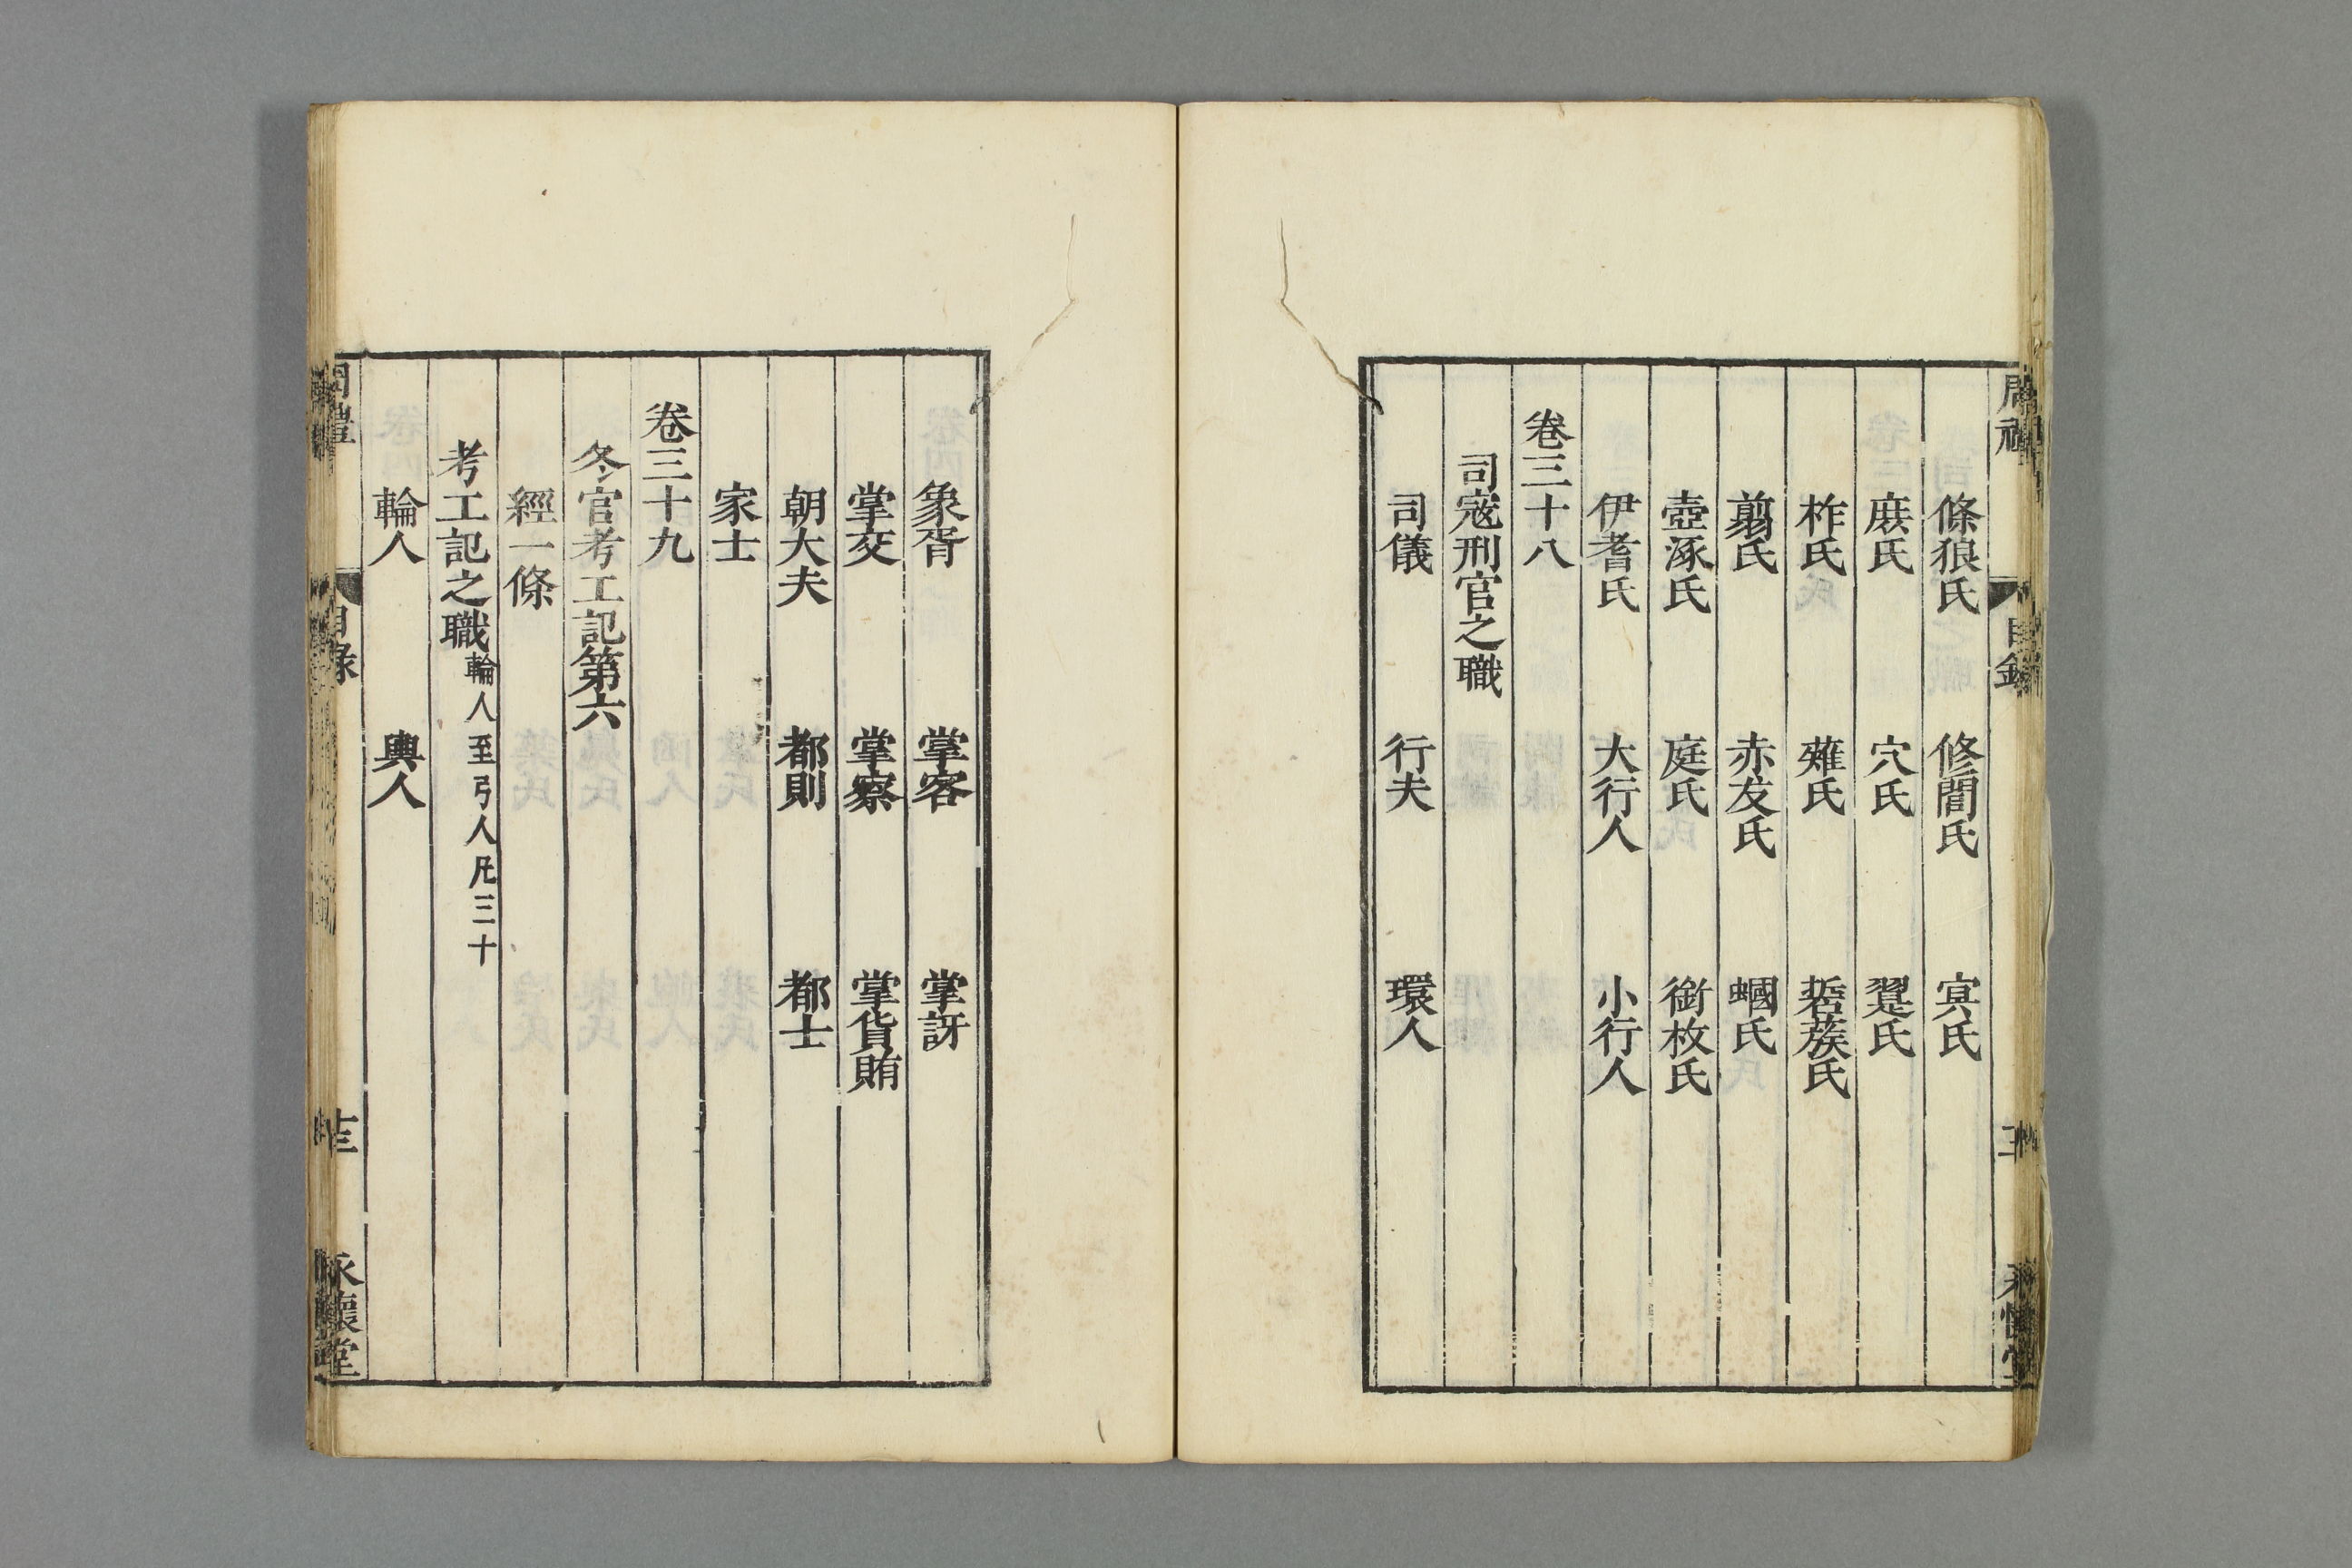 條狼氏 修閭氏 㝠氏
庶氏 穴氏 翨氏
柞氏 薙氏 硩蔟氏
翦氏 赤犮氏 蟈氏
壺涿氏 庭氏 銜枚氏
伊耆氏 大行人 小行人
卷三十八
司寇刑官之職
司儀 行夫 環人
象胥 掌客 掌訝
掌交 掌察 掌貨賄
朝大夫 都則 都士
家士
卷三十九
冬官考工記第六
經一條
考工記之職 輪人至弓人凡三十
輪人 輿人
周禮 目錄 永懷堂